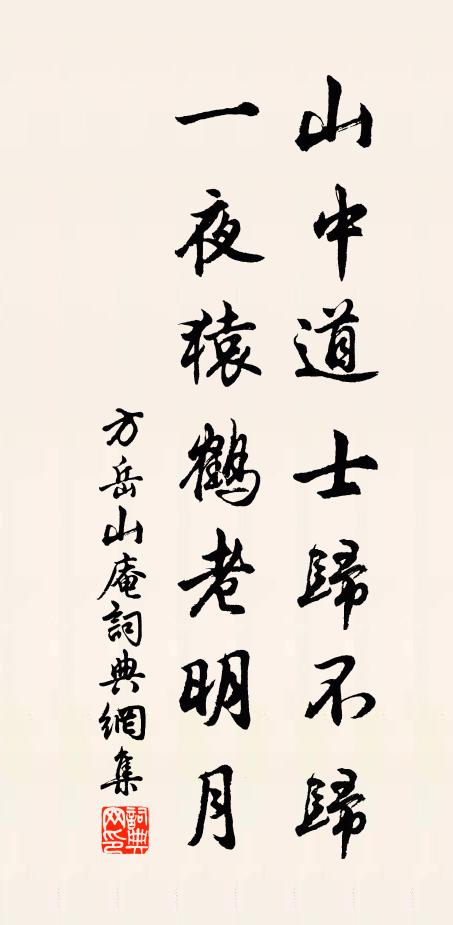 山中道士歸不歸
一夜猿鶴老明月
方岳山庵詞典網集
詞典网印